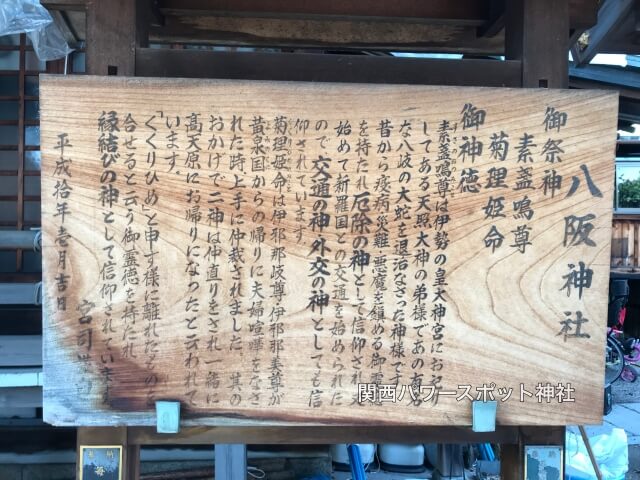 八阪神社
御祭神
素盞鳴尊
菊理姫命
御神徳
素盞鳴尊は伊勢の皇大神宮にお祀り
してある天照大神の弟様であの有名
な八岐の大蛇を退治なさった神様です。
昔から疫病災難、悪魔を鎮める御霊徳
を持たれ厄除の神として信仰され又
始めて新羅国との交通を始められた
ので交通の神、外交の神としても信
仰されています。
菊理姫命は伊邪那岐尊、伊邪那美尊が
黄泉国からの帰りに夫婦喧嘩をなさ
れた時、上手に仲裁されました。其の
おかげで二神は仲直りをされ一緒に
高天原にお帰りになったと云われて
います。
「くくりひめ」と申す様に離れたものを
合せると云う御霊徳を持たれ
縁結びの神として信仰されています。
平成拾年壱月吉日
宮司
関西パワースポット神社
奉納